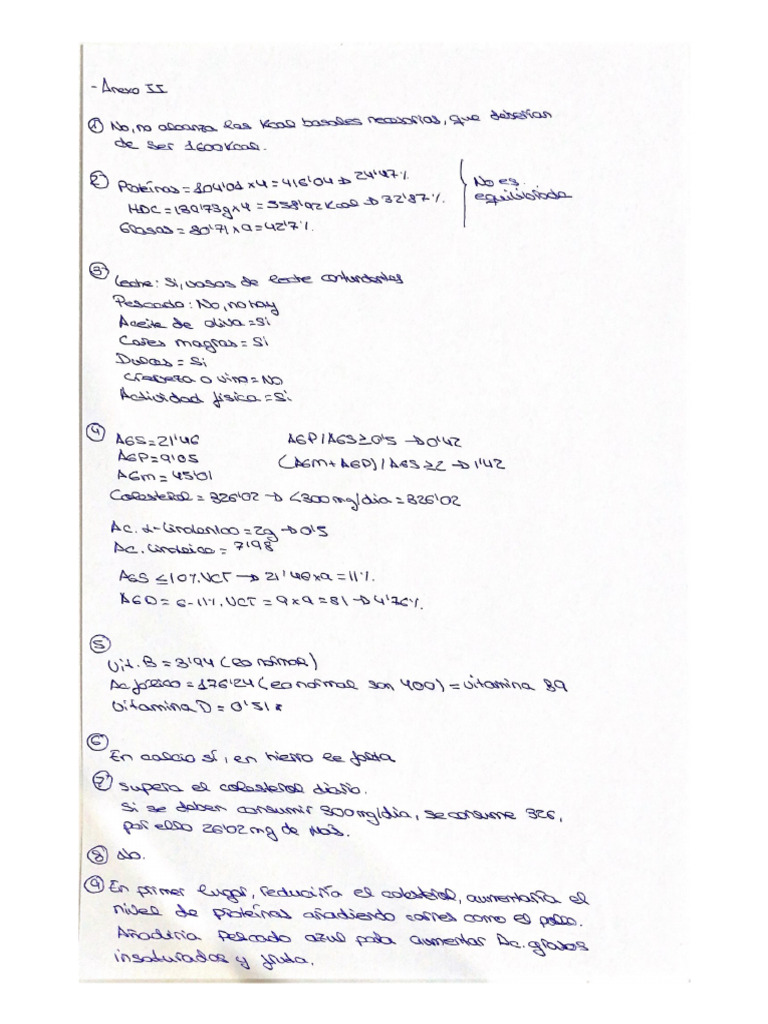 - Anexo II
① No, no alcanza las Kcal basales necesarias, que deberían
de ser 1600Kcal.
② Proteínas = 104'01 x 4 = 416'04 → 24'47%
HDC = 139'73g x 4 = 558'92 Kcal → 32'87%
Grasas = 80'71 x 9 = 42'7%.
No es
equilibrada
③ Leche: Si, vasos de leche contundentes
Pescado: No, no hay
Aceite de oliva = Si
Carnes magras = Si
Dulces = Si
Cerveza o vino = No
Actividad física = Si
④ AGS = 21'46
AGP/AGS ≥ 0'5 → 0'42
AGP = 9'05
(AGM + AGP) / AGS ≥ 2 → 1'42
AGM = 45'01
Colesterol = 326'02 → <300 mg/dia = 326'02
Ac. α-Linolenico = 2g → 0'5
Ac. Linoleico = 7'98
AGS ≤ 10% VCT → 21'46 x 9 = 11%
AGP = 6-11% VCT = 9 x 9 = 81 → 4'76%
⑤
Vit. B = 3'94 (lo normal)
Ac. fólico = 176'24 (lo normal son 400) = vitamina B9
Vitamina D = 0'51 *
⑥
En calcio sí, en hierro le falta
⑦ Supera el colesterol diario.
Si se deben consumir 300mg/día, se consume 326,
por ello 26'02 mg de más.
⑧ No.
⑨ En primer lugar, reduciría el colesterol, aumentaría el
nivel de proteínas añadiendo carnes como el pollo.
Añadiría pescado azul para aumentar Ac. grasos
insaturados y fruta.